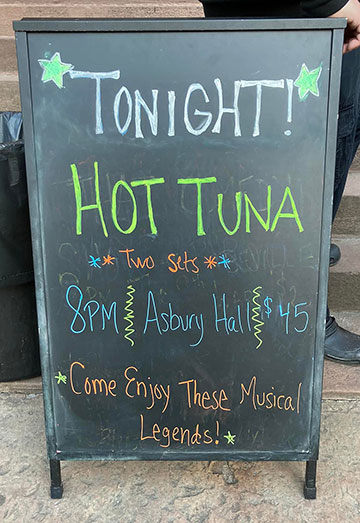 TONIGHT!
HOT TUNA
** Two sets **
8PM Asbury Hall $45
Come Enjoy These Musical
Legends!